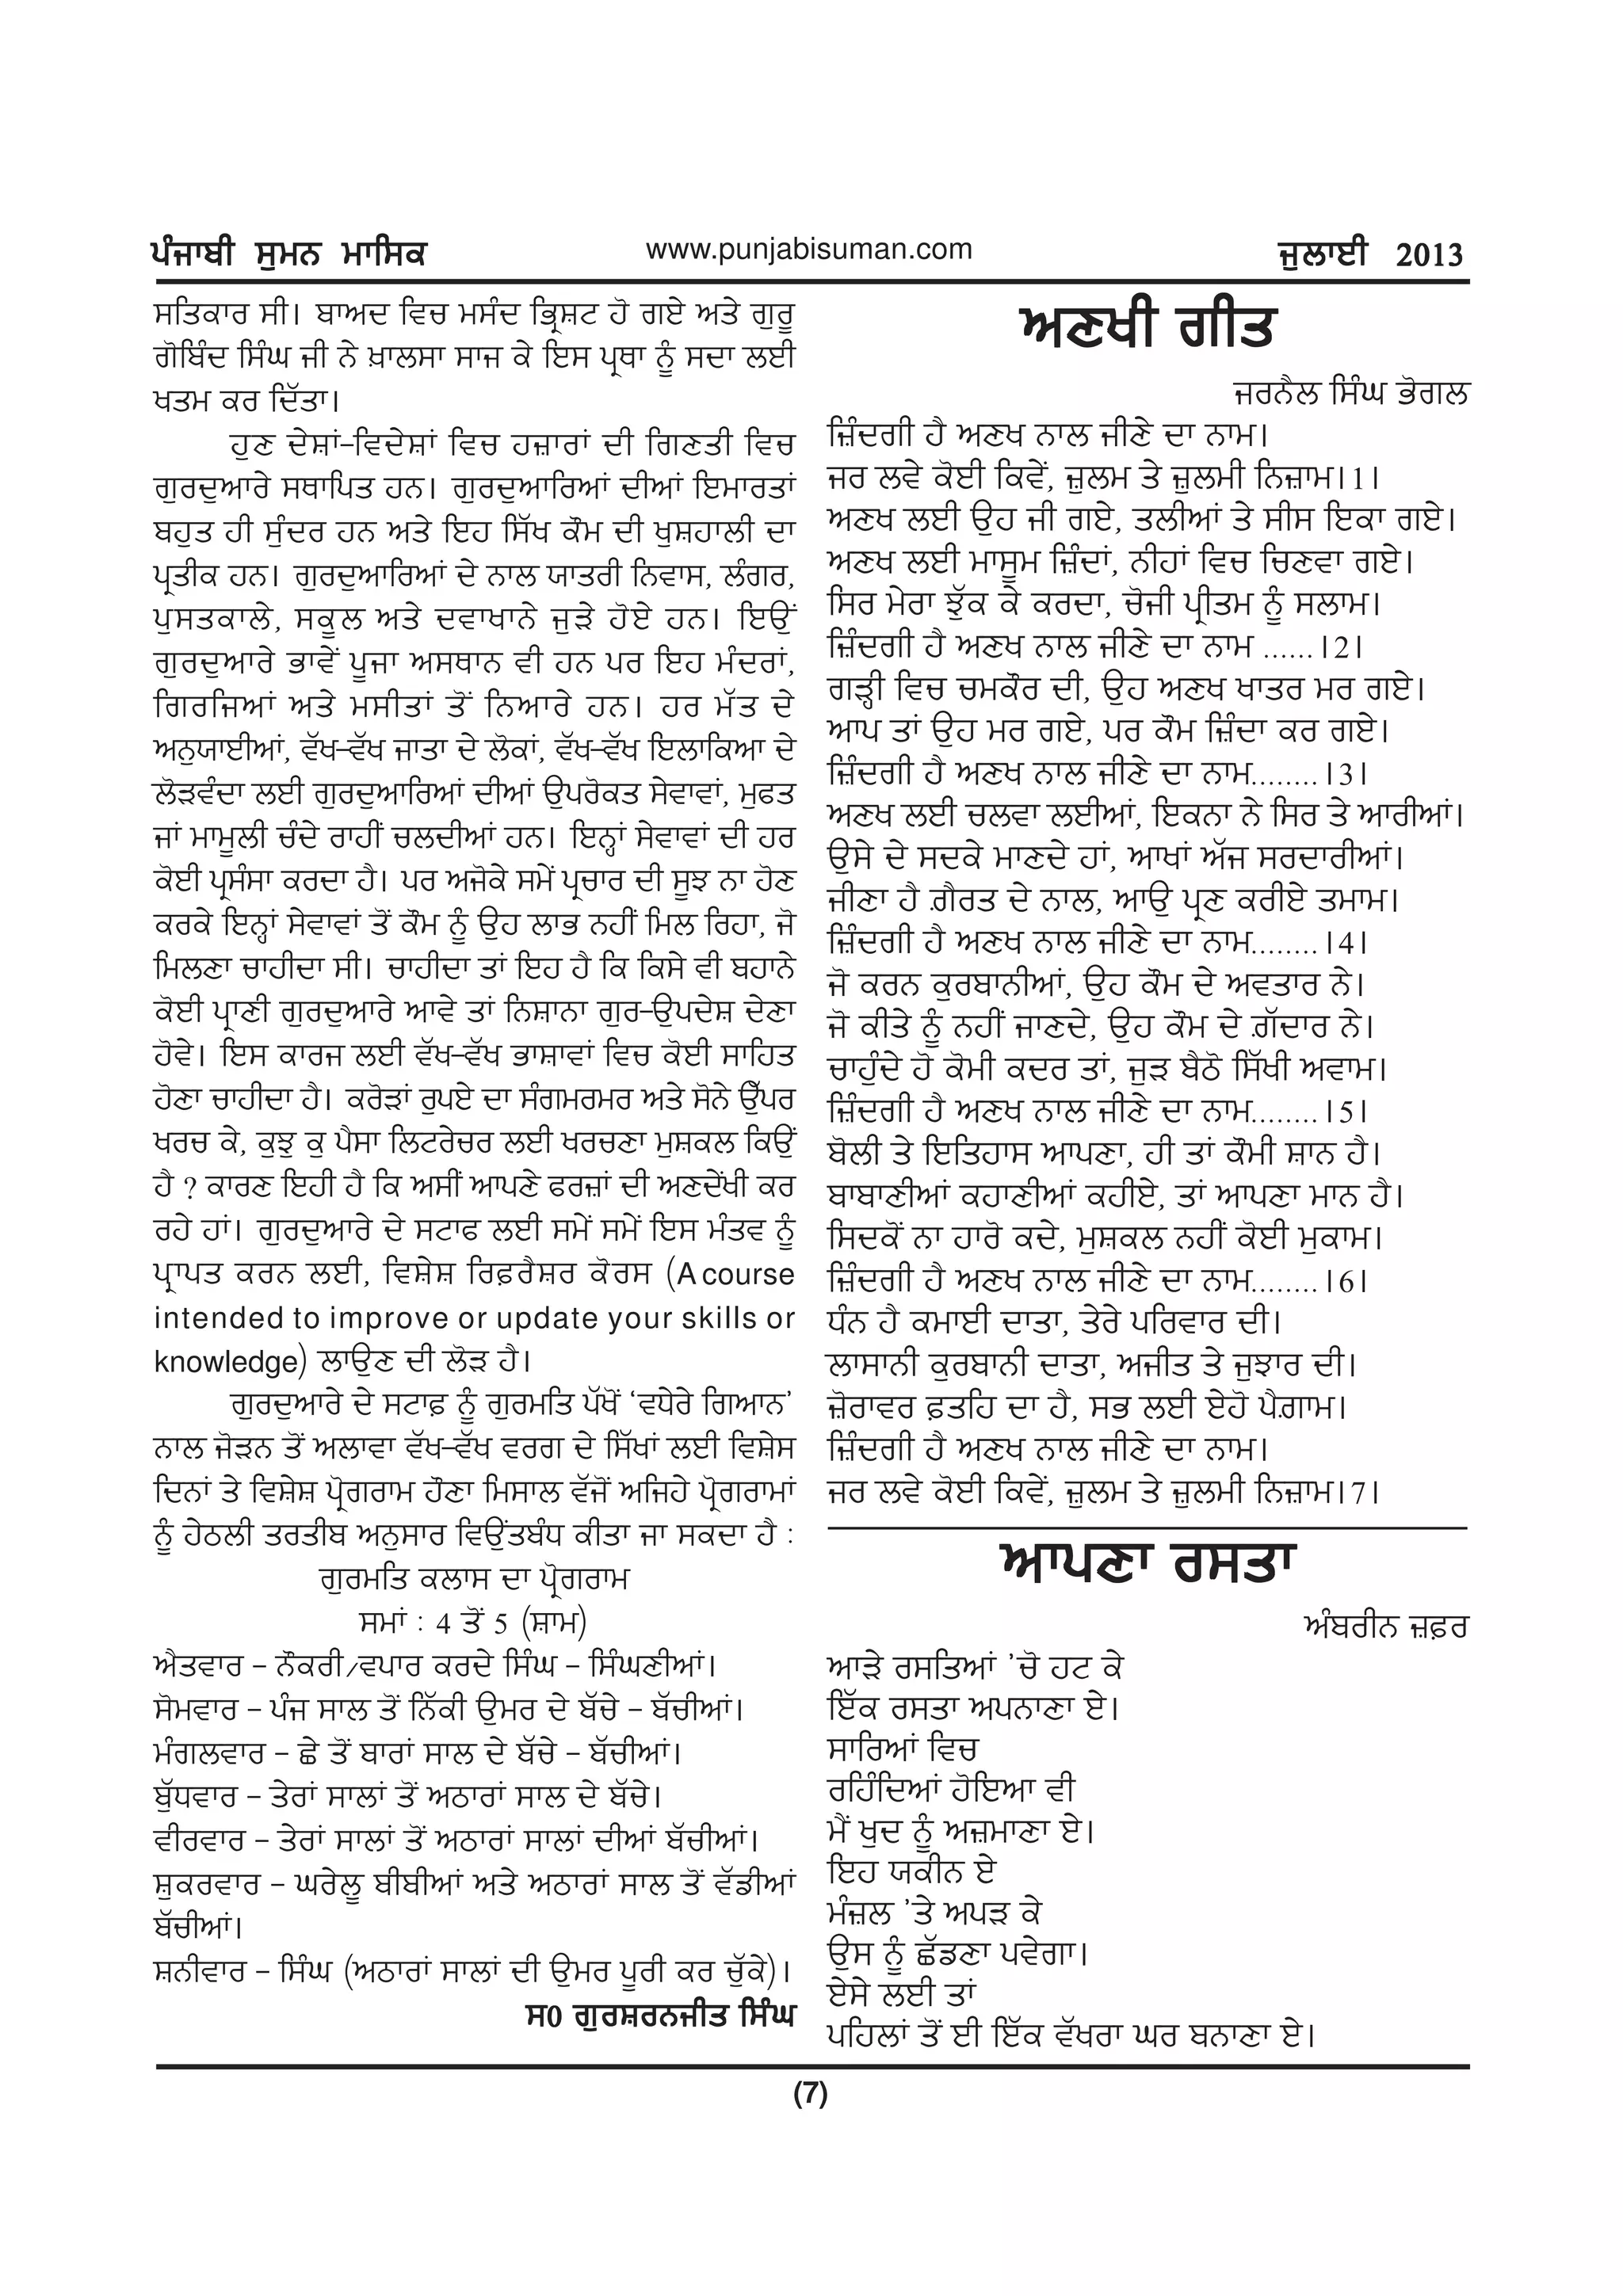 ਪੰਜਾਬੀ ਸੁਮਨ ਮਾਸਿਕ
www.punjabisuman.com
ਜੁਲਾਈ 2013
ਸਤਿਕਾਰ ਸੀ। ਬਾਅਦ ਵਿਚ ਮਸੰਦ ਭ੍ਰਿਸ਼ਟ ਹੋ ਗਏ ਅਤੇ ਗੁਰੂ
ਗੋਬਿੰਦ ਸਿੰਘ ਜੀ ਨੇ ਖ਼ਾਲਸਾ ਸਾਜ ਕੇ ਇਸ ਪ੍ਰਥਾ ਨੂੰ ਸਦਾ ਲਈ
ਖਤਮ ਕਰ ਦਿੱਤਾ।
ਹੁਣ ਦੇਸ਼ਾਂ-ਵਿਦੇਸ਼ਾਂ ਵਿਚ ਹਜ਼ਾਰਾਂ ਦੀ ਗਿਣਤੀ ਵਿਚ
ਗੁਰਦੁਆਰੇ ਸਥਾਪਿਤ ਹਨ। ਗੁਰਦੁਆਰਿਆਂ ਦੀਆਂ ਇਮਾਰਤਾਂ
ਬਹੁਤ ਹੀ ਸੁੰਦਰ ਹਨ ਅਤੇ ਇਹ ਸਿੱਖ ਕੌਮ ਦੀ ਖੁਸ਼ਹਾਲੀ ਦਾ
ਪ੍ਰਤੀਕ ਹਨ। ਗੁਰਦੁਆਰਿਆਂ ਦੇ ਨਾਲ ਯਾਤਰੀ ਨਿਵਾਸ, ਲੰਗਰ,
ਪੁਸਤਕਾਲੇ, ਸਕੂਲ ਅਤੇ ਦਵਾਖਾਨੇ ਜੁੜੇ ਹੋਏ ਹਨ। ਇਉਂ
ਗੁਰਦੁਆਰੇ ਭਾਵੇਂ ਪੂਜਾ ਅਸਥਾਨ ਵੀ ਹਨ ਪਰ ਇਹ ਮੰਦਰਾਂ,
ਗਿਰਜਿਆਂ ਅਤੇ ਮਸੀਤਾਂ ਤੋਂ ਨਿਆਰੇ ਹਨ। ਹਰ ਮੱਤ ਦੇ
ਅਨੁਯਾਈਆਂ, ਵੱਖ-ਵੱਖ ਜਾਤਾ ਦੇ ਲੋਕਾਂ, ਵੱਖ-ਵੱਖ ਇਲਾਕਿਆ ਦੇ
ਲੋੜਵੰਦਾ ਲਈ ਗੁਰਦੁਆਰਿਆਂ ਦੀਆਂ ਉਪਰੋਕਤ ਸੇਵਾਵਾਂ, ਮੁਫਤ
ਜਾਂ ਮਾਮੂਲੀ ਚੰਦੇ ਰਾਹੀਂ ਚਲਦੀਆਂ ਹਨ। ਇਨ੍ਹਾਂ ਸੇਵਾਵਾਂ ਦੀ ਹਰ
ਕੋਈ ਪ੍ਰਸੰਸਾ ਕਰਦਾ ਹੈ। ਪਰ ਅਜੋਕੇ ਸਮੇਂ ਪ੍ਰਚਾਰ ਦੀ ਸੂਝ ਨਾ ਹੋਣ
ਕਰਕੇ ਇਨ੍ਹਾਂ ਸੇਵਾਵਾਂ ਤੋਂ ਕੌਮ ਨੂੰ ਉਹ ਲਾਭ ਨਹੀਂ ਮਿਲ ਰਿਹਾ, ਜੋ
ਮਿਲਣਾ ਚਾਹੀਦਾ ਸੀ। ਚਾਹੀਦਾ ਤਾਂ ਇਹ ਹੈ ਕਿ ਕਿਸੇ ਵੀ ਬਹਾਨੇ
ਕੋਈ ਪ੍ਰਾਣੀ ਗੁਰਦੁਆਰੇ ਆਵੇ ਤਾਂ ਨਿਸ਼ਾਨਾ ਗੁਰ-ਉਪਦੇਸ਼ ਦੇਣਾ
ਹੋਵੇ। ਇਸ ਕਾਰਜ ਲਈ ਵੱਖ-ਵੱਖ ਭਾਸ਼ਾਵਾਂ ਵਿਚ ਕੋਈ ਸਾਹਿਤ
ਹੋਣਾ ਚਾਹੀਦਾ ਹੈ। ਕਰੋੜਾਂ ਰੁਪਏ ਦਾ ਸੰਗਮਰਮਰ ਅਤੇ ਸੋਨੇ ਉੱਪਰ
ਖਰਚ ਕੇ, ਕੁਝ ਕੁ ਪੈਸਾ ਲਿਟਰੇਚਰ ਲਈ ਖਰਚਣਾ ਮੁਸ਼ਕਲ ਕਿਉਂ
ਹੈ ? ਕਾਰਣ ਇਹੀ ਹੈ ਕਿ ਅਸੀਂ ਆਪਣੇ ਫਰਜ਼ਾਂ ਦੀ ਅਣਦੇਂਖੀ ਕਰ
ਰਹੇ ਹਾਂ। ਗੁਰਦੁਆਰੇ ਦੇ ਸਟਾਫ ਲਈ ਸਮੇਂ ਸਮੇਂ ਇਸ ਮੰਤਵ ਨੂੰ
ਪ੍ਰਾਪਤ ਕਰਨ ਲਈ, ਵਿਸ਼ੇਸ਼ ਰਿਫ਼ਰੈਸ਼ਰ ਕੋਰਸ (A course
intended to improve or update your skills or
knowledge) ਲਾਉਣ ਦੀ ਲੋੜ ਹੈ।
ਗੁਰਦੁਆਰੇ ਦੇ ਸਟਾਫ਼ ਨੂੰ ਗੁਰਮਤਿ ਪੱਖੋਂ ‘ਵਧੇਰੇ ਗਿਆਨ’
ਨਾਲ ਜੋੜਨ ਤੋਂ ਅਲਾਵਾ ਵੱਖ-ਵੱਖ ਵਰਗ ਦੇ ਸਿੱਖਾਂ ਲਈ ਵਿਸ਼ੇਸ
ਦਿਨਾਂ ਤੇ ਵਿਸ਼ੇਸ਼ ਪ੍ਰੋਗਰਾਮ ਹੌਣਾ ਮਿਸਾਲ ਵੱਜੋਂ ਅਜਿਹੇ ਪ੍ਰੋਗਰਾਮਾਂ
ਨੂੰ ਹੇਠਲੀ ਤਰਤੀਬ ਅਨੁਸਾਰ ਵਿਉਂਤਬੰਧ ਕੀਤਾ ਜਾ ਸਕਦਾ ਹੈ :
ਗੁਰਮਤਿ ਕਲਾਸ ਦਾ ਪ੍ਰੋਗਰਾਮ
ਸਮਾਂ : 4 ਤੋਂ 5 (ਸ਼ਾਮ)
ਐਤਵਾਰ - ਨੌਕਰੀ/ਵਪਾਰ ਕਰਦੇ ਸਿੰਘ - ਸਿੰਘਣੀਆਂ।
ਸੋਮਵਾਰ - ਪੰਜ ਸਾਲ ਤੋਂ ਨਿੱਕੀ ਉਮਰ ਦੇ ਬੱਚੇ - ਬੱਚੀਆਂ।
ਮੰਗਲਵਾਰ - ਛੇ ਤੋਂ ਬਾਰਾਂ ਸਾਲ ਦੇ ਬੱਚੇ - ਬੱਚੀਆਂ।
ਬੁੱਧਵਾਰ - ਤੇਰਾਂ ਸਾਲਾਂ ਤੋਂ ਅਠਾਰਾਂ ਸਾਲ ਦੇ ਬੱਚੇ।
ਵੀਰਵਾਰ - ਤੇਰਾਂ ਸਾਲਾਂ ਤੋਂ ਅਠਾਰਾਂ ਸਾਲਾਂ ਦੀਆਂ ਬੱਚੀਆਂ।
ਸ਼ੁਕਰਵਾਰ - ਘਰੇਲੂ ਬੀਬੀਆਂ ਅਤੇ ਅਠਾਰਾਂ ਸਾਲ ਤੋਂ ਵੱਡੀਆਂ
ਬੱਚੀਆਂ।
ਸ਼ਨੀਵਾਰ - ਸਿੰਘ (ਅਠਾਰਾਂ ਸਾਲਾਂ ਦੀ ਉਮਰ ਪੂਰੀ ਕਰ ਚੁੱਕੇ)।
ਸ0 ਗੁਰਸ਼ਰਨਜੀਤ ਸਿੰਘ
ਅਣਖੀ ਗੀਤ
ਜਰਨੈਲ ਸਿੰਘ ਭੋਗਲ
ਜ਼ਿੰਦਗੀ ਹੈ ਅਣਖ ਨਾਲ ਜੀਣੇ ਦਾ ਨਾਮ।
ਜਰ ਲਵੇ ਕੋਈ ਕਿਵੇਂ, ਜ਼ੁਲਮ ਤੇ ਜ਼ੁਲਮੀ ਨਿਜ਼ਾਮ।1।
ਅਣਖ ਲਈ ਉਹ ਜੀ ਗਏ, ਤਲੀਆਂ ਤੇ ਸੀਸ ਇਕਾ ਗਏ।
ਅਣਖ ਲਈ ਮਾਸੂਮ ਜ਼ਿੰਦਾਂ, ਨੀਹਾਂ ਵਿਚ ਚਿਣਵਾ ਗਏ।
ਸਿਰ ਮੇਰਾ ਝੁੱਕ ਕੇ ਕਰਦਾ, ਚੋਜੀ ਪ੍ਰੀਤਮ ਨੂੰ ਸਲਾਮ।
ਜ਼ਿੰਦਗੀ ਹੈ ਅਣਖ ਨਾਲ ਜੀਣੇ ਦਾ ਨਾਮ ......।2।
ਗੜ੍ਹੀ ਵਿਚ ਚਮਕੌਰ ਦੀ, ਉਹ ਅਣਖ ਖਾਤਰ ਮਰ ਗਏ।
ਆਪ ਤਾਂ ਉਹ ਮਰ ਗਏ, ਪਰ ਕੌਮ ਜ਼ਿੰਦਾ ਕਰ ਗਏ।
ਜ਼ਿੰਦਗੀ ਹੈ ਅਣਖ ਨਾਲ ਜੀਣੇ ਦਾ ਨਾਮ........।3।
ਅਣਖ ਲਈ ਚਲਵਾ ਲਈਆਂ, ਇਕਨਾ ਨੇ ਸਿਰ ਤੇ ਆਰੀਆਂ।
ਉਸੇ ਦੇ ਸਦਕੇ ਮਾਣਦੇ ਹਾਂ, ਆਖਾਂ ਅੱਜ ਸਰਦਾਰੀਆਂ।
ਜੀਣਾ ਹੈ ਗ਼ੈਰਤ ਦੇ ਨਾਲ, ਆਉ ਪ੍ਰਣ ਕਰੀਏ ਤਮਾਮ।
ਜ਼ਿੰਦਗੀ ਹੈ ਅਣਖ ਨਾਲ ਜੀਣੇ ਦਾ ਨਾਮ........।4।
ਜੋ ਕਰਨ ਕੁਰਬਾਨੀਆਂ, ਉਹ ਕੌਮ ਦੇ ਅਵਤਾਰ ਨੇ।
ਜੋ ਕੀਤੇ ਨੂੰ ਨਹੀਂ ਜਾਣਦੇ, ਉਹ ਕੌਮ ਦੇ ਗ਼ੱਦਾਰ ਨੇ।
ਚਾਹੁੰਦੇ ਹੋ ਕੋਮੀ ਕਦਰ ਤਾਂ, ਜੁੜ ਬੈਠੋ ਸਿੱਖੀ ਅਵਾਮ।
ਜ਼ਿੰਦਗੀ ਹੈ ਅਣਖ ਨਾਲ ਜੀਣੇ ਦਾ ਨਾਮ........।5।
ਬੋਲੀ ਤੇ ਇਤਿਹਾਸ ਆਪਣਾ, ਹੀ ਤਾਂ ਕੌਮੀ ਸ਼ਾਨ ਹੈ।
ਬਾਬਾਣੀਆਂ ਕਹਾਣੀਆਂ ਕਹੀਏ, ਤਾਂ ਆਪਣਾ ਮਾਨ ਹੈ।
ਸਿਦਕੋਂ ਨਾ ਹਾਰੋ ਕਦੇ, ਮੁਸ਼ਕਲ ਨਹੀਂ ਕੋਈ ਮੁਕਾਮ।
ਜ਼ਿੰਦਗੀ ਹੈ ਅਣਖ ਨਾਲ ਜੀਣੇ ਦਾ ਨਾਮ........।6।
ਧੰਨ ਹੈ ਕਮਾਈ ਦਾਤਾ, ਤੇਰੇ ਪਰਿਵਾਰ ਦੀ।
ਲਾਸਾਨੀ ਕੁਰਬਾਨੀ ਦਾਤਾ, ਅਜੀਤ ਤੇ ਜੁਝਾਰ ਦੀ।
ਜ਼ੋਰਾਵਰ ਫ਼ਤਹਿ ਦਾ ਹੈ, ਸਭ ਲਈ ਏਹੋ ਪੈਗ਼ਾਮ।
ਜ਼ਿੰਦਗੀ ਹੈ ਅਣਖ ਨਾਲ ਜੀਣੇ ਦਾ ਨਾਮ।
ਜਰ ਲਵੇ ਕੋਈ ਕਿਵੇਂ, ਜ਼ੁਲਮ ਤੇ ਜ਼ੁਲਮੀ ਨਿਜ਼ਾਮ।7।
ਆਪਣਾ ਰਸਤਾ
ਅੰਬਰੀਨ ਜ਼ਫ਼ਰ
ਆੜੇ ਰਸਤਿਆਂ ’ਚੋ ਹਟ ਕੇ
ਇੱਕ ਰਸਤਾ ਅਪਨਾਣਾ ਏ।
ਸਾਰਿਆਂ ਵਿਚ
ਰਹਿੰਦਿਆਂ ਹੋਇਆ ਵੀ
ਮੈਂ ਖੁਦ ਨੂੰ ਅਜ਼ਮਾਣਾ ਏ।
ਇਹ ਯਕੀਨ ਏ
ਮੰਜ਼ਲ ’ਤੇ ਅਪੜ ਕੇ
ਉਸ ਨੂੰ ਛੱਡਣਾ ਪਵੇਗਾ।
ਏਸੇ ਲਈ ਤਾਂ
ਪਹਿਲਾਂ ਤੋਂ ਈ ਇੱਕ ਵੱਖਰਾ ਘਰ ਬਨਾਣਾ ਏ।
(7)